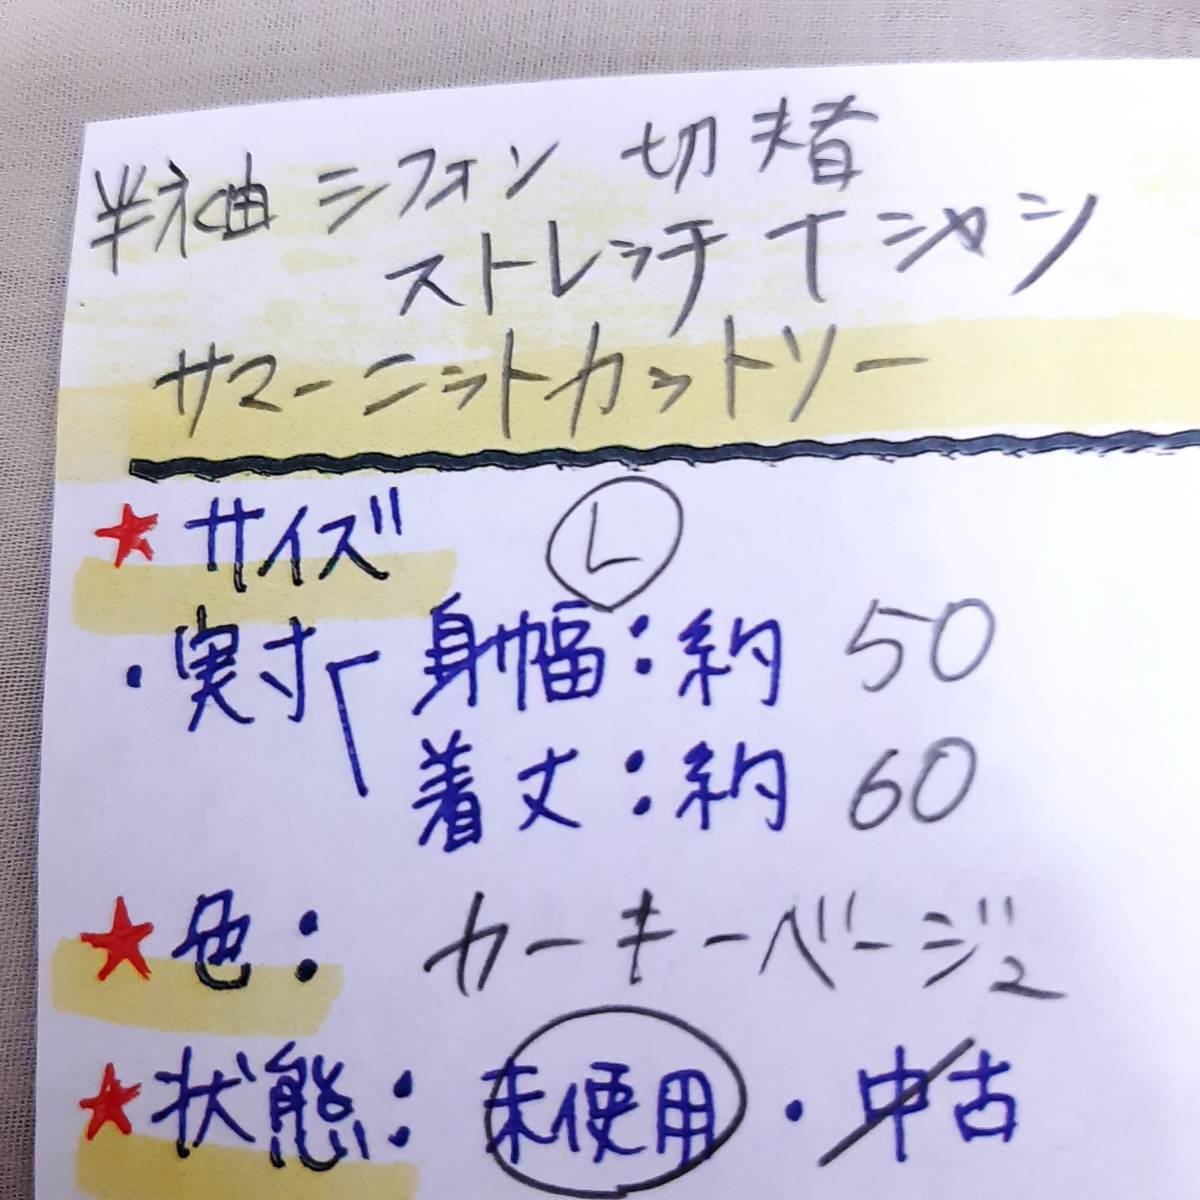 半袖 シフォン 切替
ストレッチ Tシャツ
サマーニットカットソー
★サイズ Ⓛ
・実寸 身幅:約 50
着丈:約 60
★色: カーキーベージュ
★状態: 未使用・中古